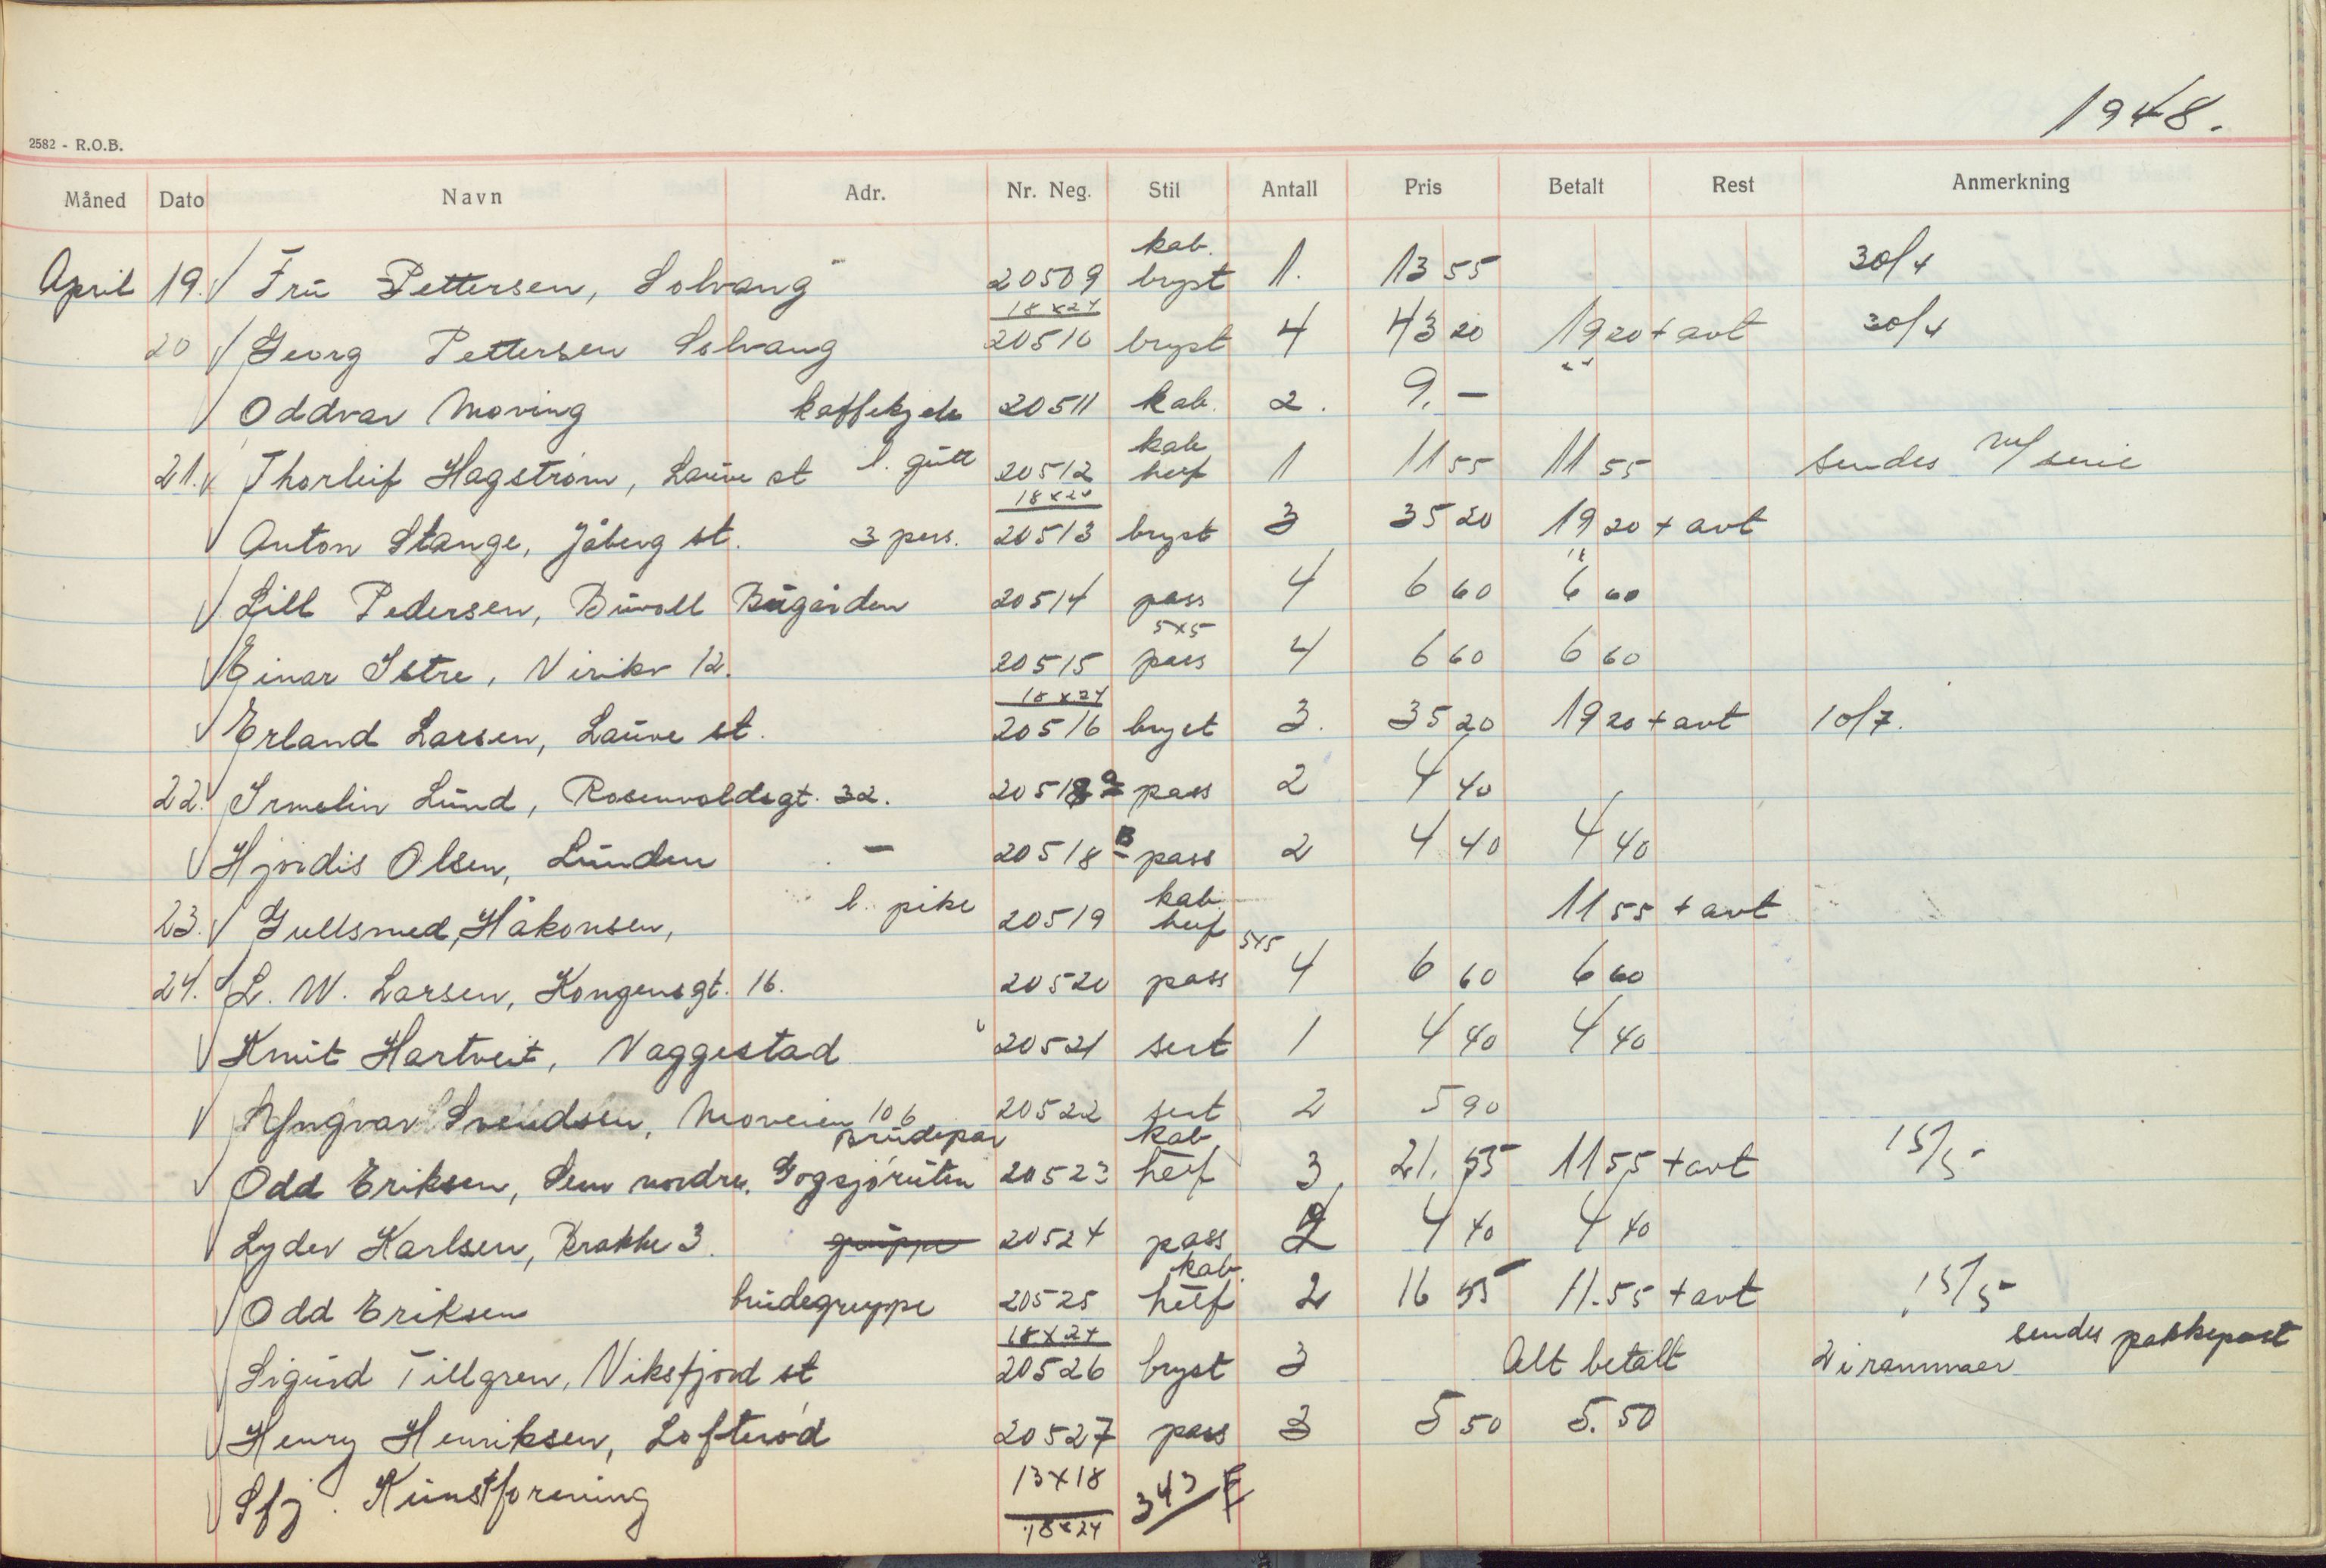 1948.
2582 - R.O.B.
Måned Dato Navn Adr. Nr. Neg. Stil Antall Pris Betalt Rest Anmerkning
kab.
April 19. √ Frü Pettersen, Solvang 20509 bryst 1. 13 55 30/4
18x24
20 √ Georg Pettersen Solvang 20510 bryst 4 43 20 19 20 + avt 30/4
√ Oddvar Moving kaffekjele 20511 kab. 2. 9. —
kab
21. √ Thorleif Hagstrøm, Laüve st l. gütt 20512 helf 1 11 55 11 55 sendes m/ serie
18x24
√ Anton Stange, Jåberg st. 3 pers. 20513 bryst 3 35 20 19 20 + avt
√ Lill Pedersen, Büvoll Bügården 20514 pass 4 6 60 6 60
5x5
√ Einar Istre, Nirikv 12. 20515 pass 4 6 60 6 60
18x24
√ Erland Larsen, Laüve st. 20516 bryst 3. 35 20 19 20 + avt 10/7.
22. √ Irmelin Lünd, Rosenvoldsgt. 32. 20518 a pass 2 4 40
√ Hjördis Olsen, Lünden — 20518 B pass 2 4 40 4 40
kab.
23. √ Gullsmed Håkonsen, l. pike 20519 helf 11 55 + avt
5x5
24. √ L. W. Larsen, Kongensgt. 16. 20520 pass 4 6 60 6 60
√ Knüt Hartveit, Vaggestad 20521 sert 1 4 40 4 40
√ Yngvar Svendsen, Moveien 106 20522 sert 2 5 90
Brüdepar kab.
√ Odd Eriksen, Sem nordre, Gogsjørüten 20523 helf 3. 21. 55 11 55 + avt 15/5
√ Lyder Karlsen, Brakke 3. grüppe 20524 pass 2 4 40 4 40
kab.
√ Odd Eriksen brüdegruppe 20525 helf 2 16 55 11.55 + avt 15/5
18x24 sendes pakkepost
√ Sigürd Tillgren, Viksfjord st 20526 bryst 3 Alt betalt 2 i rammaer
√ Henry Henriksen, Lofterød 20527 pass 3 5 50 5. 50
√ Sfj. Künstforening 13x18 343
18x24